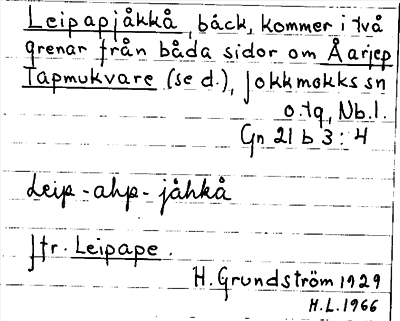 Leipapjåkkå, bäck, kommer i två
grenar från båda sidor om Åarjep
Tapmukvare (se d.), Jokkmokks sn
o. tg, Nb. l.
Gn 21 b 3:4
Leip-ahp-jåhkå
Jfr. Leipape.
H. Grundström 1929
H.L. 1966